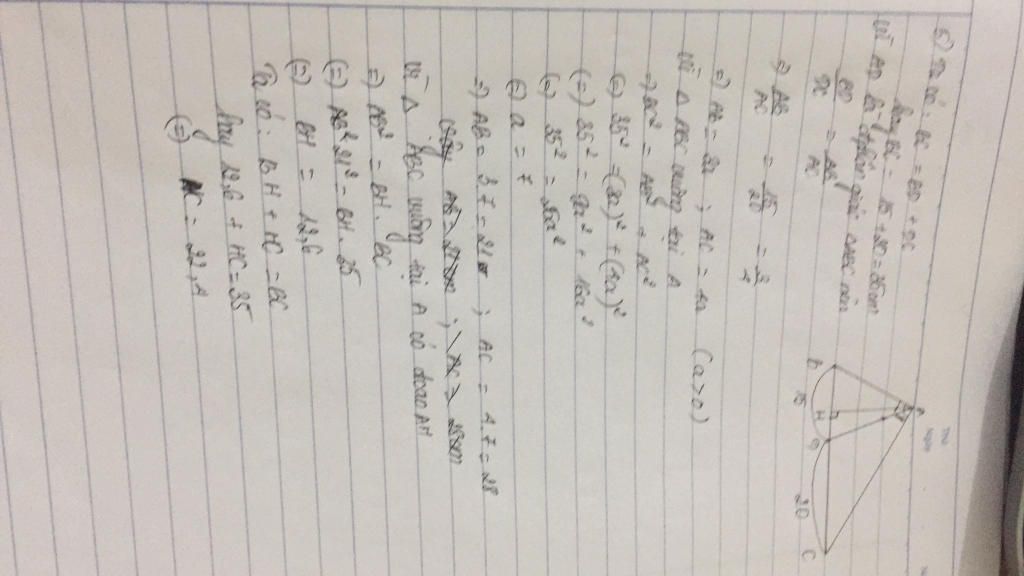 5) Ta có: BC = BD + DC
hay BC = 15 + 20 = 35cm
Vì AD là đường phân giác ΔABC nên
BD/DC = AB/AC
=) AB/AC = 15/20 = 3/4
=) AB = 3a ; AC = 4a (a>0)
Vì Δ ABC vuông tại A
=) BC² = AB² + AC²
(=) 35² = (3a)² + (4a)²
(=) 35² = 9a² + 16a²
(=) 35² = 25a²
(=) a = 7
=) AB = 3.7 = 21 ; AC = 4.7 = 28
Vì Δ ABC vuông tại A có đcao AH
=) AB² = BH. BC
(=) 21² = BH.35
(=) BH = 12,6
Ta có: BH + HC = BC
hay 12,6 + HC = 35
(=) HC = 22,4
A
B
H
D
C
15
20